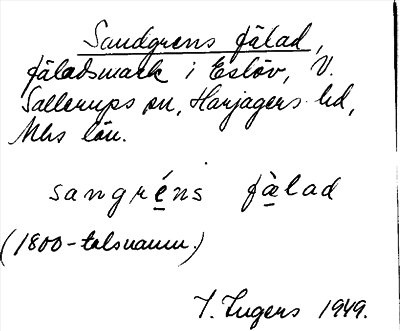 Sandgrens fälad,
fäladsmark i Eslöv, V.
Sallerups sn, Harjagers hd,
Mhs län.
sangréns fàlad
(1800-talsnamn.)
I. Ingers 1949.